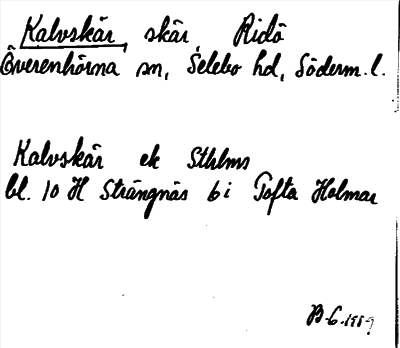 Kalvskär, skär Ridö
Överenhörna sn, Selebo hd, Söderm. l.
Kalvskär ek Sthlms
bl. 10 H Strängnäs 6 i Tofta Holmar